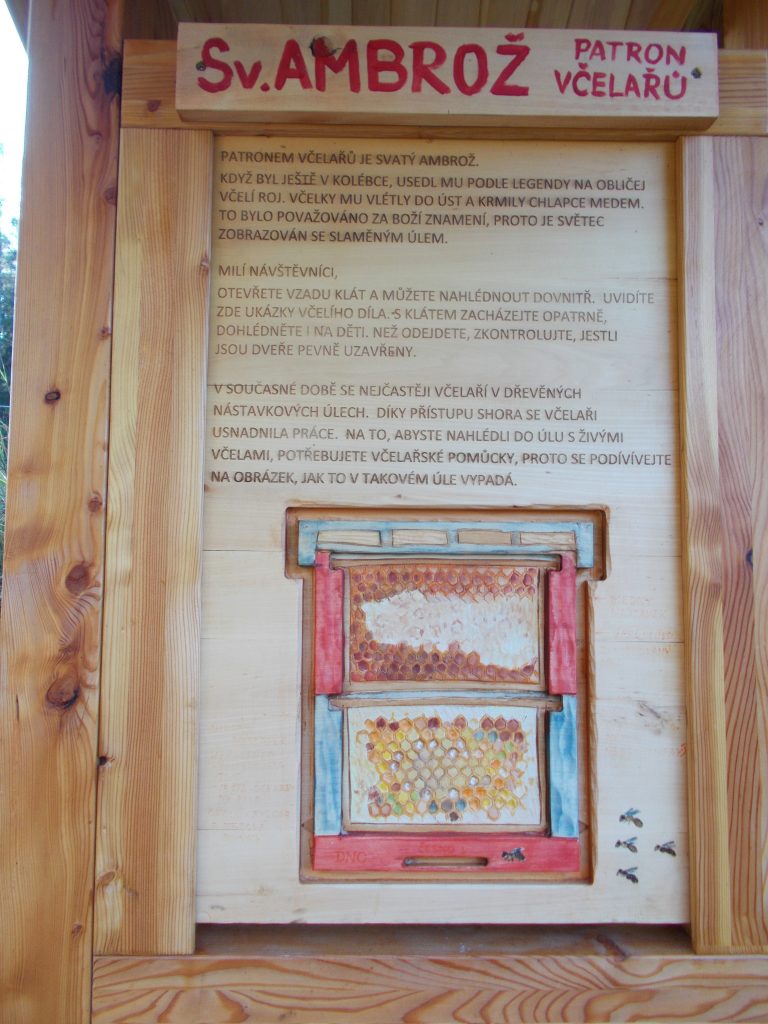 Sv. AMBROŽ PATRON VČELAŘŮ
PATRONEM VČELAŘŮ JE SVATÝ AMBROŽ.
KDYŽ BYL JEŠTĚ V KOLÉBCE, USEDL MU PODLE LEGENDY NA OBLIČEJ
VČELÍ ROJ. VČELKY MU VLÉTLY DO ÚST A KRMILY CHLAPCE MEDEM.
TO BYLO POVAŽOVÁNO ZA BOŽÍ ZNAMENÍ, PROTO JE SVĚTEC
ZOBRAZOVÁN SE SLAMĚNÝM ÚLEM.
MILÍ NÁVŠTĚVNÍCI,
OTEVŘETE VZADU KLÁT A MŮŽETE NAHLÉDNOUT DOVNITŘ. UVIDÍTE
ZDE UKÁZKY VČELÍHO DÍLA. S KLÁTEM ZACHÁZEJTE OPATRNĚ,
DOHLÉDNĚTE I NA DĚTI. NEŽ ODEJDETE, ZKONTROLUJTE, JESTLI
JSOU DVEŘE PEVNĚ UZAVŘENY.
V SOUČASNÉ DOBĚ SE NEJČASTĚJI VČELAŘÍ V DŘEVĚNÝCH
NÁSTAVKOVÝCH ÚLECH. DÍKY PŘÍSTUPU SHORA SE VČELAŘI
USNADNILA PRÁCE. NA TO, ABYSTE NAHLÉDLI DO ÚLU S ŽIVÝMI
VČELAMI, POTŘEBUJETE VČELAŘSKÉ POMŮCKY, PROTO SE PODÍVÍVEJTE
NA OBRÁZEK, JAK TO V TAKOVÉM ÚLE VYPADÁ.
ČESNO
DNO